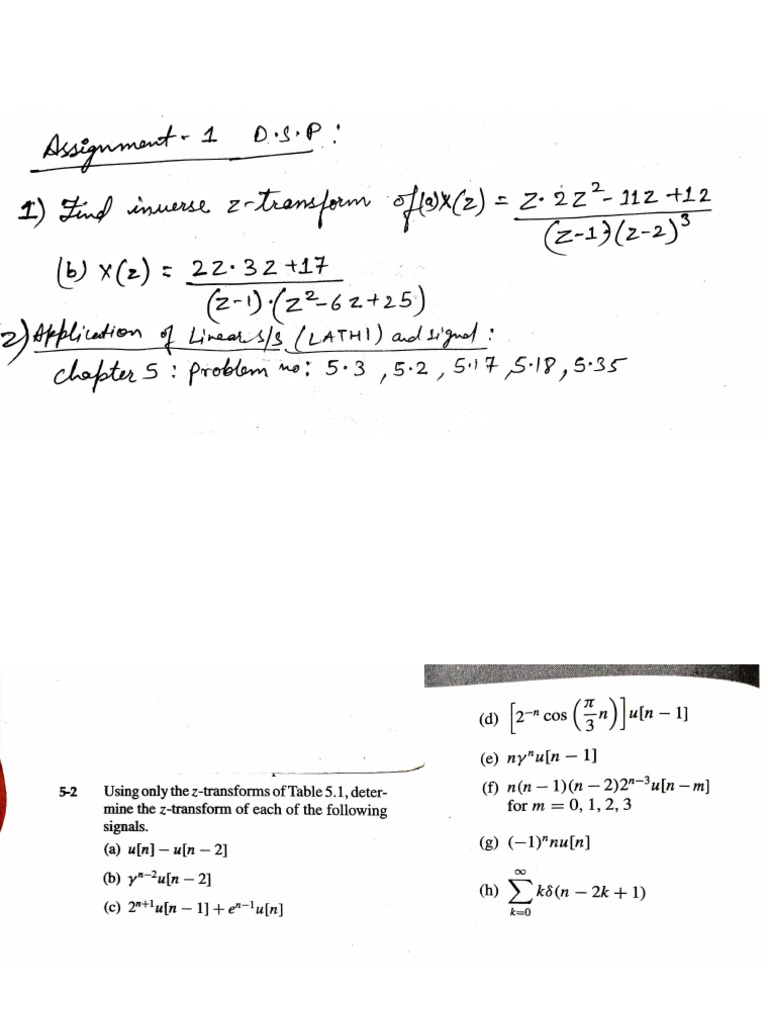 Assignment - 1 D.S.P :
1) Find inverse z-transform of (a) X(z) = z·2z²-11z+12
(z-1)(z-2)³
(b) X(z) = 2z·3z+17
(z-1)·(z²-6z+25)
2) Application of Linear s/s (LATHI) and signal :
chapter 5 : problem no: 5.3, 5.2, 5.17, 5.18, 5.35
5-2 Using only the z-transforms of Table 5.1, deter-
mine the z-transform of each of the following
signals.
(a) u[n] − u[n − 2]
(b) γⁿ⁻²u[n − 2]
(c) 2ⁿ⁺¹u[n − 1] + eⁿ⁻¹u[n]
(d) [2⁻ⁿ cos (π/3 n)] u[n − 1]
(e) nγⁿu[n − 1]
(f) n(n − 1)(n − 2)2ⁿ⁻³u[n − m]
for m = 0, 1, 2, 3
(g) (−1)ⁿnu[n]
(h) ∞∑k=0 kδ(n − 2k + 1)